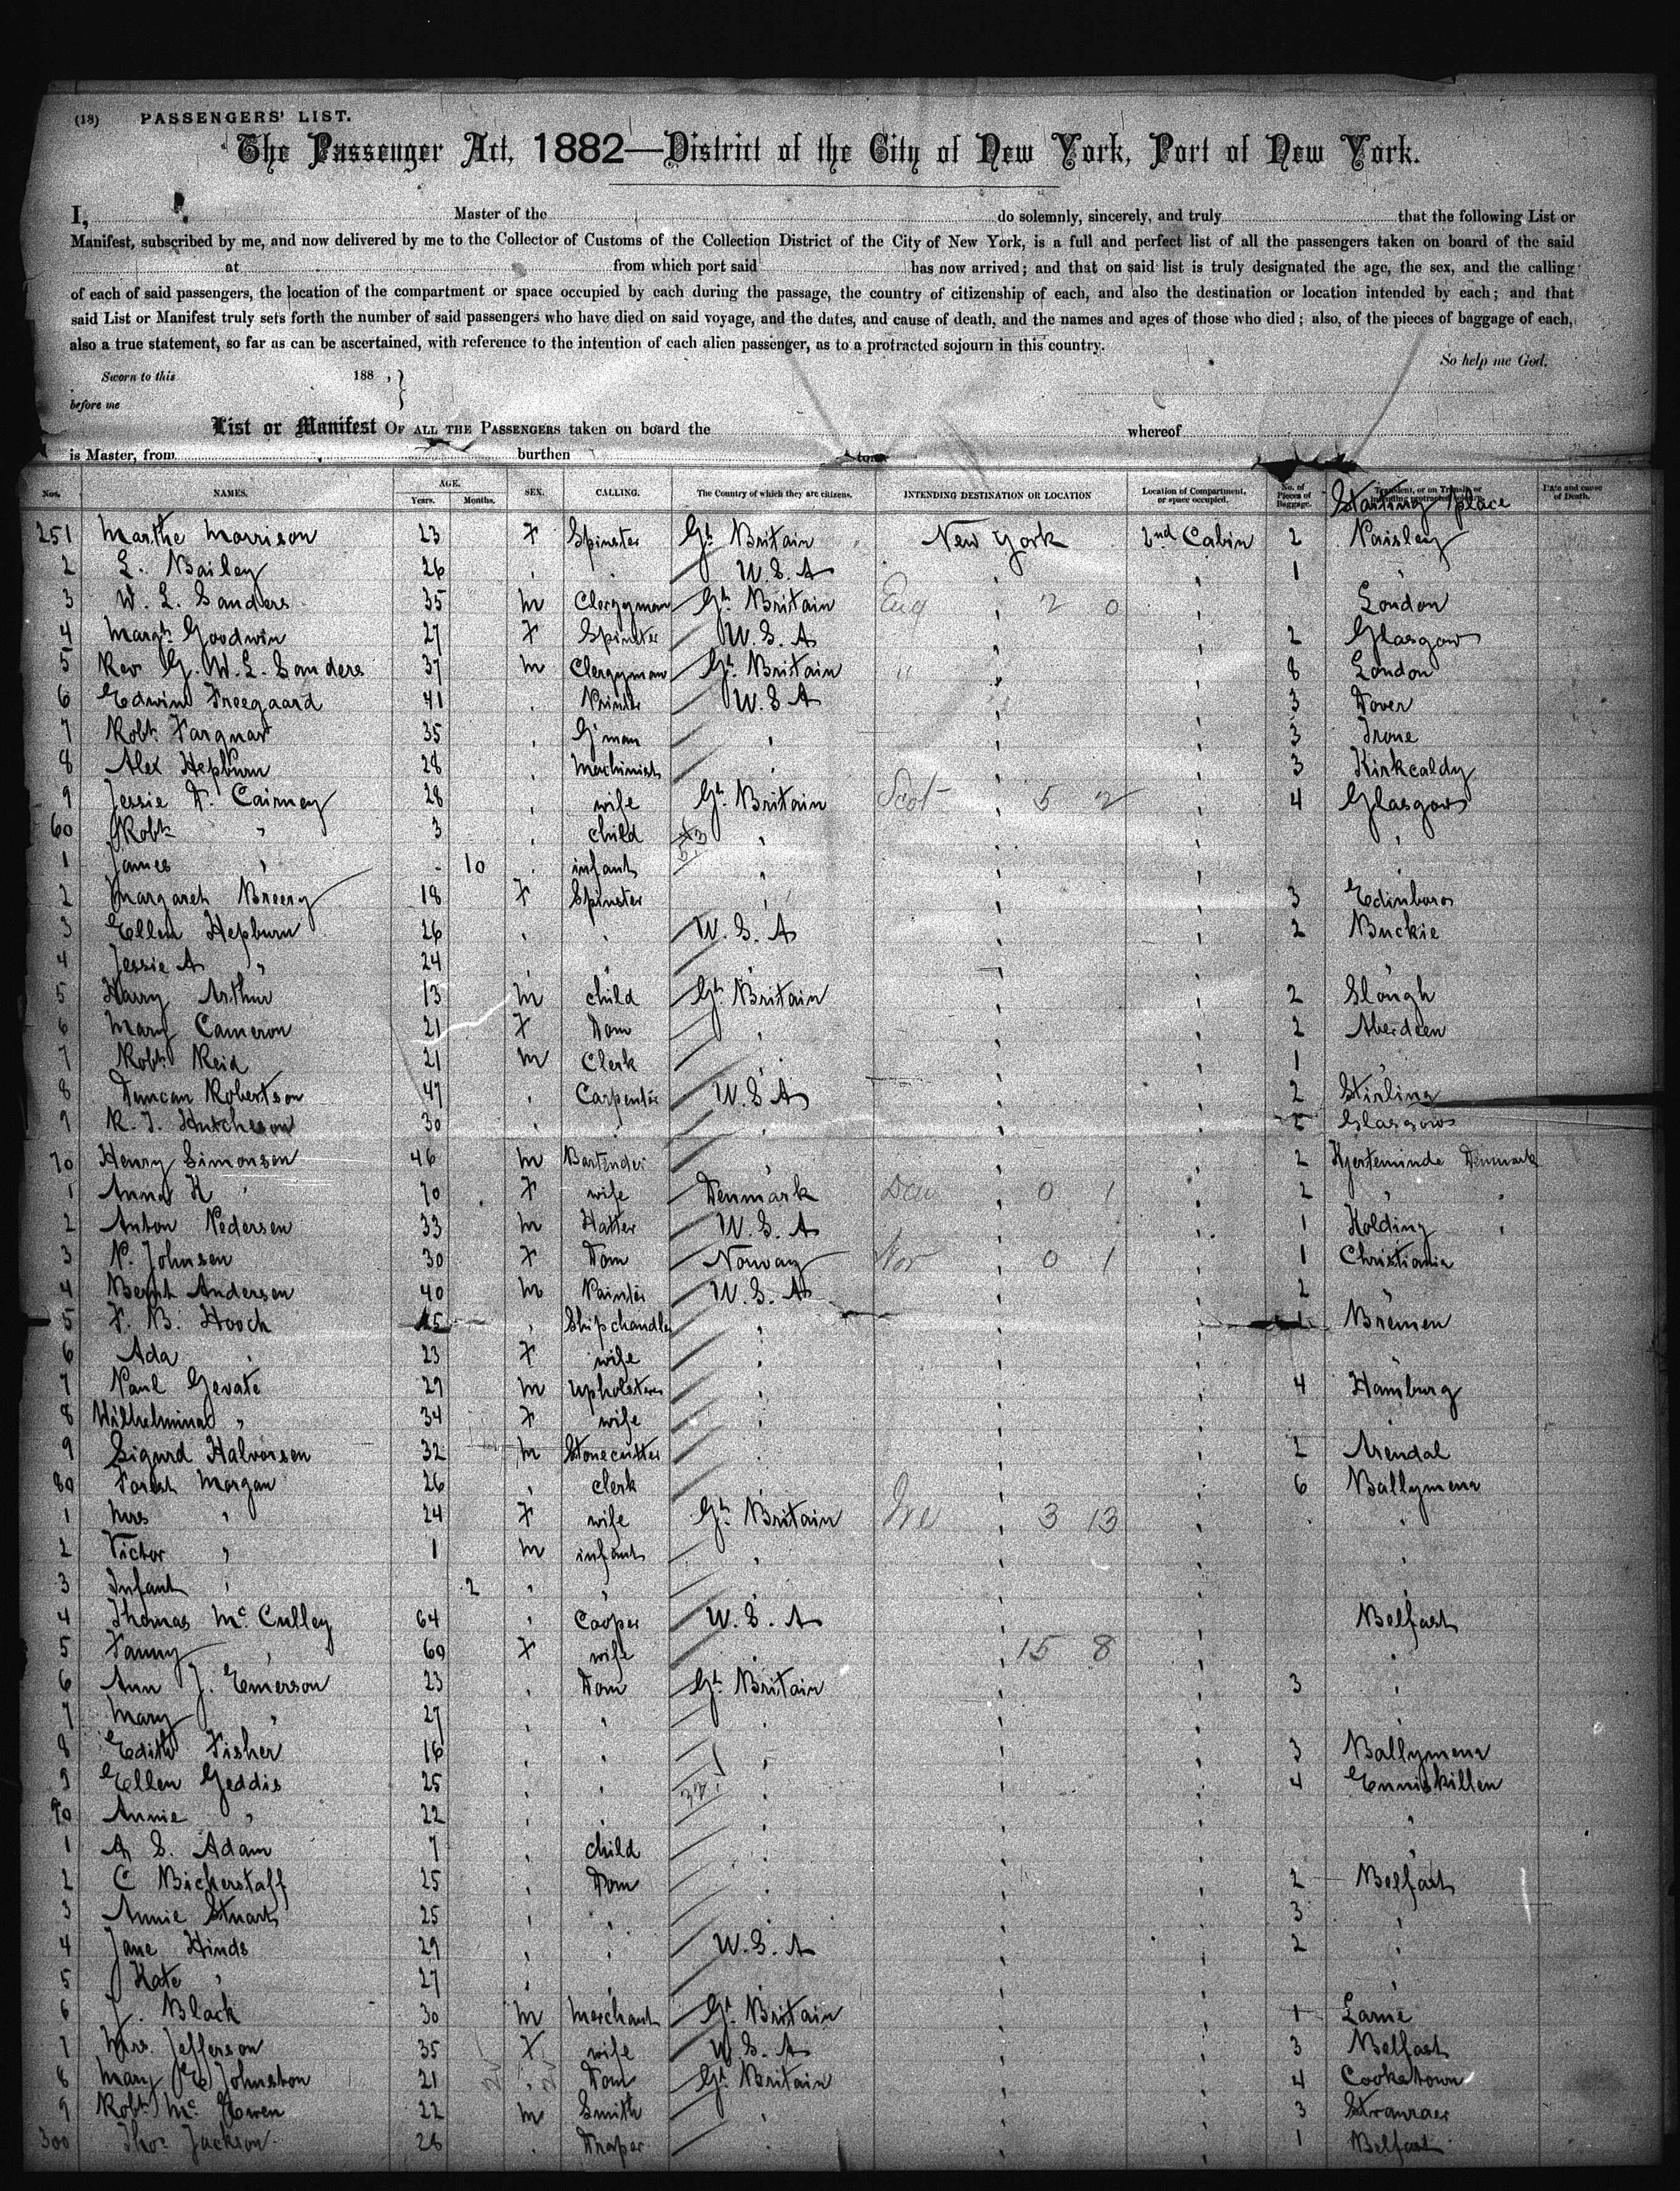 (13) PASSENGERS' LIST.
The Passenger Act, 1882—District of the City of New York, Port of New York.
I, Master of the do solemnly, sincerely, and truly that the following List or
Manifest, subscribed by me, and now delivered by me to the Collector of Customs of the Collection District of the City of New York, is a full and perfect list of all the passengers taken on board of the said
at from which port said has now arrived; and that on said list is truly designated the age, the sex, and the calling
of each of said passengers, the location of the compartment or space occupied by each during the passage, the country of citizenship of each, and also the destination or location intended by each; and that
said List or Manifest truly sets forth the number of said passengers who have died on said voyage, and the dates, and cause of death, and the names and ages of those who died; also, of the pieces of baggage of each,
also a true statement, so far as can be ascertained, with reference to the intention of each alien passenger, as to a protracted sojourn in this country.
So help me God.
Sworn to this 188 ,
before me
List or Manifest OF ALL THE PASSENGERS taken on board the whereof
is Master, from burthen tons
Nos. NAMES. AGE. Years. Months. SEX. CALLING. The Country of which they are citizens. INTENDING DESTINATION OR LOCATION Location of Compartment, or space occupied. No. of Pieces of Baggage. Starting place Date and cause of Death.
251 Marthe Morrison 23 F Spinster Gt. Britain New York 2nd Cabin 2 Paisley
2 L. Bailey 26 " " U.S.A " " 1 "
3 W. L. Sanders 35 m Clergyman Gt. Britain Eng " 2 0 " London
4 Margt. Goodwin 27 F Spinster U.S.A " " 2 Glasgow
5 Rev G. W. L. Sanders 37 m Clergyman Gt. Britain " " " 8 London
6 Edwin Freegaard 41 " Printer U.S.A " " 3 Dover
7 Robt. Farquhar 35 " G'man " " " 3 Trone
8 Alex Hepburn 28 " Machinist " " " 3 Kirkcaldy
9 Jessie D. Cairney 28 " wife Gt. Britain Scot " 5 2 " 4 Glasgow
60 Robt " 3 " child " " " "
1 James " - 10 " infant " " "
2 Margaret Breery 18 F Spinster " " " 3 Edinboro
3 Ellen Hepburn 26 " " U.S.A " " 2 Buckie
4 Jessie A " 24 " " " " " "
5 Harry Arthur 13 m child Gt. Britain " " 2 Slough
6 Mary Cameron 21 F Dom " " " 2 Aberdeen
7 Robt. Reid 21 m Clerk " " " 1 "
8 Duncan Robertson 47 " Carpenter U.S.A " " 2 Stirling
9 R. J. Hutcheson 30 " " " " " Glasgow
70 Henry Simonsen 46 m Bartender " " " 2 Kjerteminde Denmark
1 Anna K " 70 F wife Denmark Den " 0 1 " 2 " "
2 Anton Pedersen 33 m Hatter U.S.A " " 1 Kolding "
3 P. Johnsen 30 F Dom Norway Nor " 0 1 " 1 Christiania
4 Bernt Andersen 40 m Painter U.S.A " " 2 "
5 F. B. Hooch " Shipchandler " " " 1 Bremen
6 Ada " 23 F wife " " " "
7 Paul Gevate 29 m Upholsterer " " " 4 Hamburg
8 Wilhelmina " 34 F wife " " "
9 Sigurd Halvorsen 32 m Stonecutter " " " 2 Arendal
80 Forest Morgan 26 " clerk " " " 6 Ballymena
1 Mrs " 24 F wife Gt. Britain Ire " 3 13 " "
2 Victor " 1 m infant " " " "
3 Infant " 2 " " " " " "
4 Thomas Mc Culley 64 " Cooper U.S.A " " Belfast
5 Fanny " 69 F wife " " 15 8 " "
6 Ann J. Emerson 23 " Dom Gt. Britain " " 3 "
7 Mary " 27 " " " " " "
8 Edith Fisher 16 " " " " " 3 Ballymena
9 Ellen Geddis 25 " " " " " 4 Enniskillen
90 Annie " 22 " " " " " "
1 A S. Adam 7 " child " " " "
2 C Bickerstaff 25 " Dom " " " 2 Belfast
3 Annie Stuart 25 " " " " " 3 "
4 Jane Hinds 29 " " U.S.A " " 2 "
5 Kate " 27 " " " " " "
6 J. Black 30 m Merchant Gt. Britain " " 1 Larne
7 Mrs. Jefferson 35 F wife U.S.A " " 3 Belfast
8 Mary E Johnston 21 " Dom Gt. Britain " " 4 Cookstown
9 Robt. Mc Ewen 22 m Smith " " " 3 Stranraer
300 Thos Jackson 28 " Draper " " " 1 Belfast